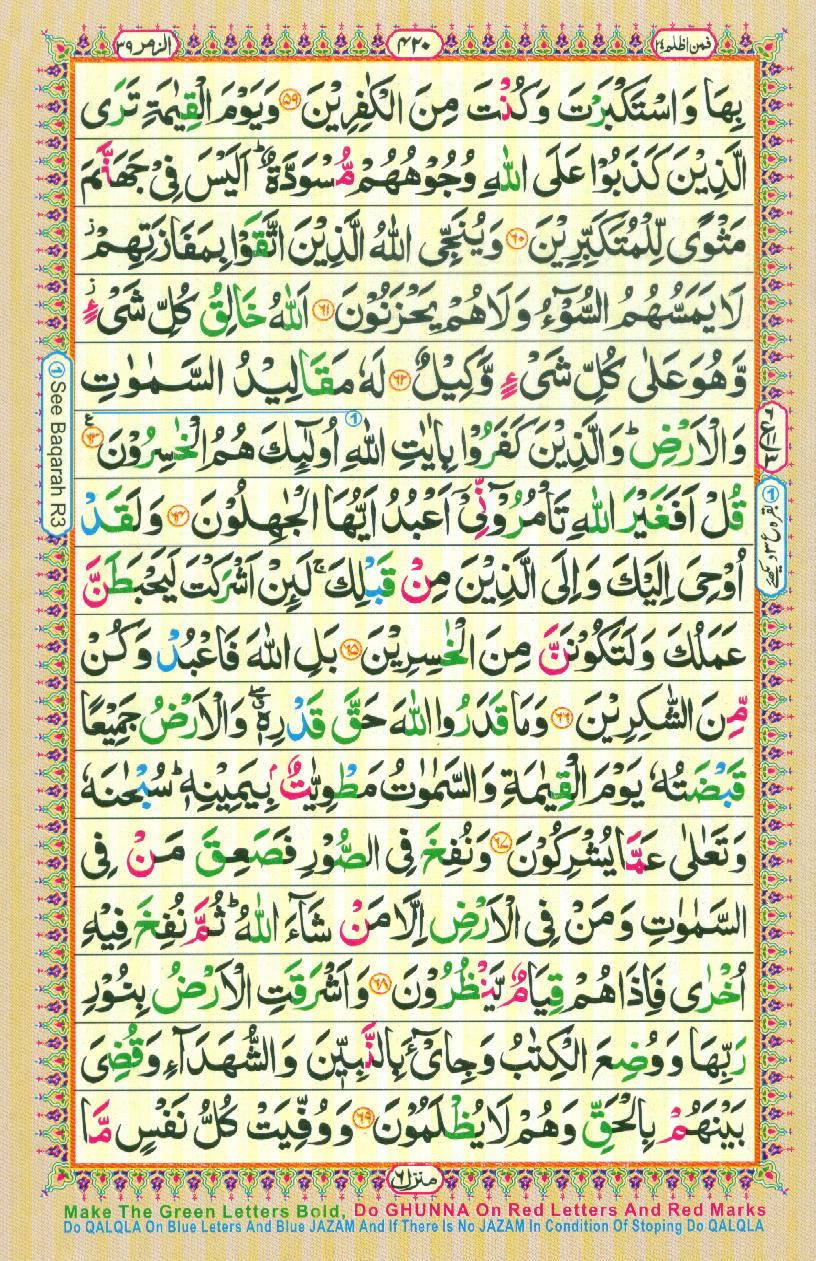 فمن اظلم ۲۴
۴۲۰
الزمر ۳۹
بِهَا وَاسْتَكْبَرْتَ وَكُنْتَ مِنَ الْكٰفِرِيْنَ ۵۹ وَيَوْمَ الْقِيٰمَةِ تَرَى
الَّذِيْنَ كَذَبُوْا عَلَى اللّٰهِ وُجُوْهُهُمْ مُّسْوَدَّةٌ ؕ اَلَيْسَ فِىْ جَهَنَّمَ
مَثْوًى لِّلْمُتَكَبِّرِيْنَ ۶۰ وَيُنَجِّى اللّٰهُ الَّذِيْنَ اتَّقَوْا بِمَفَازَتِهِمْ ز
لَا يَمَسُّهُمُ السُّوْٓءُ وَلَا هُمْ يَحْزَنُوْنَ ۶۱ اَللّٰهُ خَالِقُ كُلِّ شَىْءٍ ز
وَّهُوَ عَلٰى كُلِّ شَىْءٍ وَّكِيْلٌ ۶۲ لَهٗ مَقَالِيْدُ السَّمٰوٰتِ
وَالْاَرْضِ ؕ وَالَّذِيْنَ كَفَرُوْا بِاٰيٰتِ اللّٰهِ ۱ اُولٰٓئِكَ هُمُ الْخٰسِرُوْنَ ۶۳ ع
قُلْ اَفَغَيْرَ اللّٰهِ تَاْمُرُوْٓنِّىْٓ اَعْبُدُ اَيُّهَا الْجٰهِلُوْنَ ۶۴ وَلَقَدْ
اُوْحِىَ اِلَيْكَ وَاِلَى الَّذِيْنَ مِنْ قَبْلِكَ ۚ لَئِنْ اَشْرَكْتَ لَيَحْبَطَنَّ
عَمَلُكَ وَلَتَكُوْنَنَّ مِنَ الْخٰسِرِيْنَ ۶۵ بَلِ اللّٰهَ فَاعْبُدْ وَكُنْ
مِّنَ الشّٰكِرِيْنَ ۶۶ وَمَا قَدَرُوا اللّٰهَ حَقَّ قَدْرِهٖ ۖ وَالْاَرْضُ جَمِيْعًا
قَبْضَتُهٗ يَوْمَ الْقِيٰمَةِ وَالسَّمٰوٰتُ مَطْوِيّٰتٌۢ بِيَمِيْنِهٖ ؕ سُبْحٰنَهٗ
وَتَعٰلٰى عَمَّا يُشْرِكُوْنَ ۶۷ وَنُفِخَ فِى الصُّوْرِ فَصَعِقَ مَنْ فِى
السَّمٰوٰتِ وَمَنْ فِى الْاَرْضِ اِلَّا مَنْ شَآءَ اللّٰهُ ؕ ثُمَّ نُفِخَ فِيْهِ
اُخْرٰى فَاِذَا هُمْ قِيَامٌ يَّنْظُرُوْنَ ۶۸ وَاَشْرَقَتِ الْاَرْضُ بِنُوْرِ
رَبِّهَا وَوُضِعَ الْكِتٰبُ وَجِاىْٓءَ بِالنَّبِيّٖنَ وَالشُّهَدَآءِ وَقُضِىَ
بَيْنَهُمْ بِالْحَقِّ وَهُمْ لَا يُظْلَمُوْنَ ۶۹ وَوُفِّيَتْ كُلُّ نَفْسٍ مَّا
منزل ۶
① See Baqarah R3
Make The Green Letters Bold, Do GHUNNA On Red Letters And Red Marks
Do QALQLA On Blue Leters And Blue JAZAM And If There Is No JAZAM In Condition Of Stoping Do QALQLA